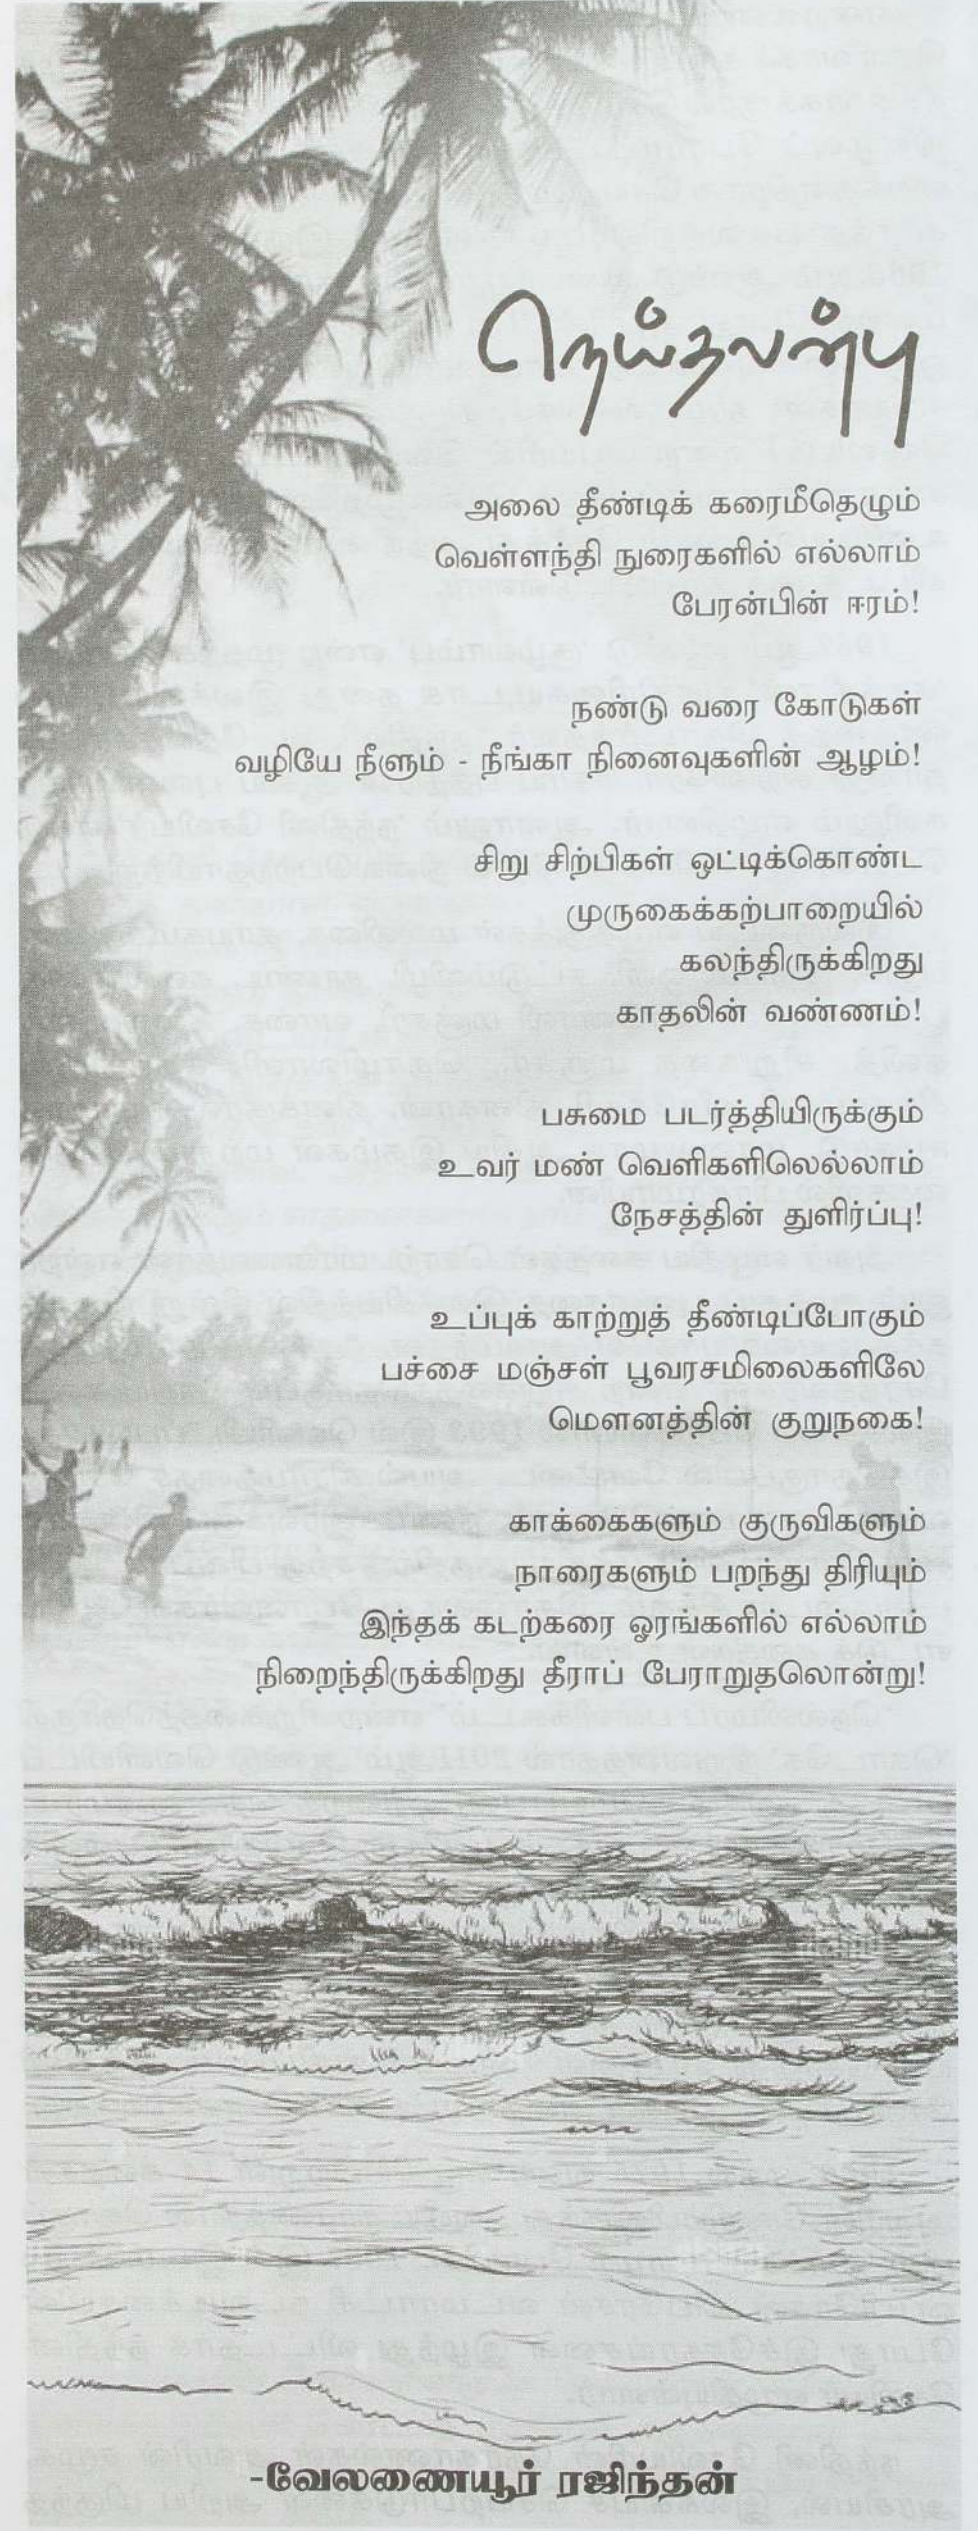 நெய்தலன்பு
அலை தீண்டிக் கரைமீதெழும்
வெள்ளந்தி நுரைகளில் எல்லாம்
பேரன்பின் ஈரம்!
நண்டு வரை கோடுகள்
வழியே நீளும் - நீங்கா நினைவுகளின் ஆழம்!
சிறு சிற்பிகள் ஒட்டிக்கொண்ட
முருகைக்கற்பாறையில்
கலந்திருக்கிறது
காதலின் வண்ணம்!
பசுமை படர்த்தியிருக்கும்
உவர் மண் வெளிகளிலெல்லாம்
நேசத்தின் துளிர்ப்பு!
உப்புக் காற்றுத் தீண்டிப்போகும்
பச்சை மஞ்சள் பூவரசமிலைகளிலே
மௌனத்தின் குறுநகை!
காக்கைகளும் குருவிகளும்
நாரைகளும் பறந்து திரியும்
இந்தக் கடற்கரை ஓரங்களில் எல்லாம்
நிறைந்திருக்கிறது தீராப் பேராறுதலொன்று!
-வேலணையூர் ரஜிந்தன்